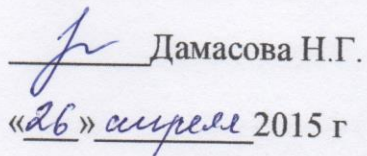 Дамасова Н.Г.
«26» апреля 2015 г